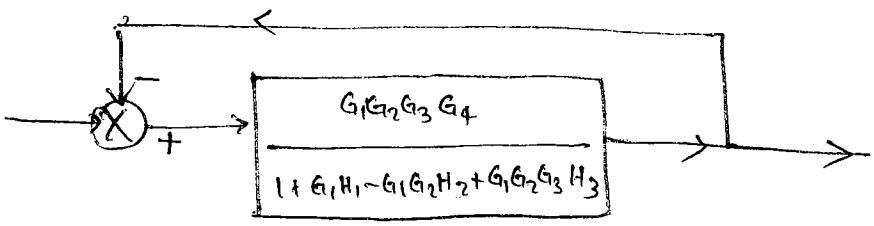 −
+
G₁G₂G₃G₄
1 + G₁H₁ − G₁G₂H₂ + G₁G₂G₃H₃